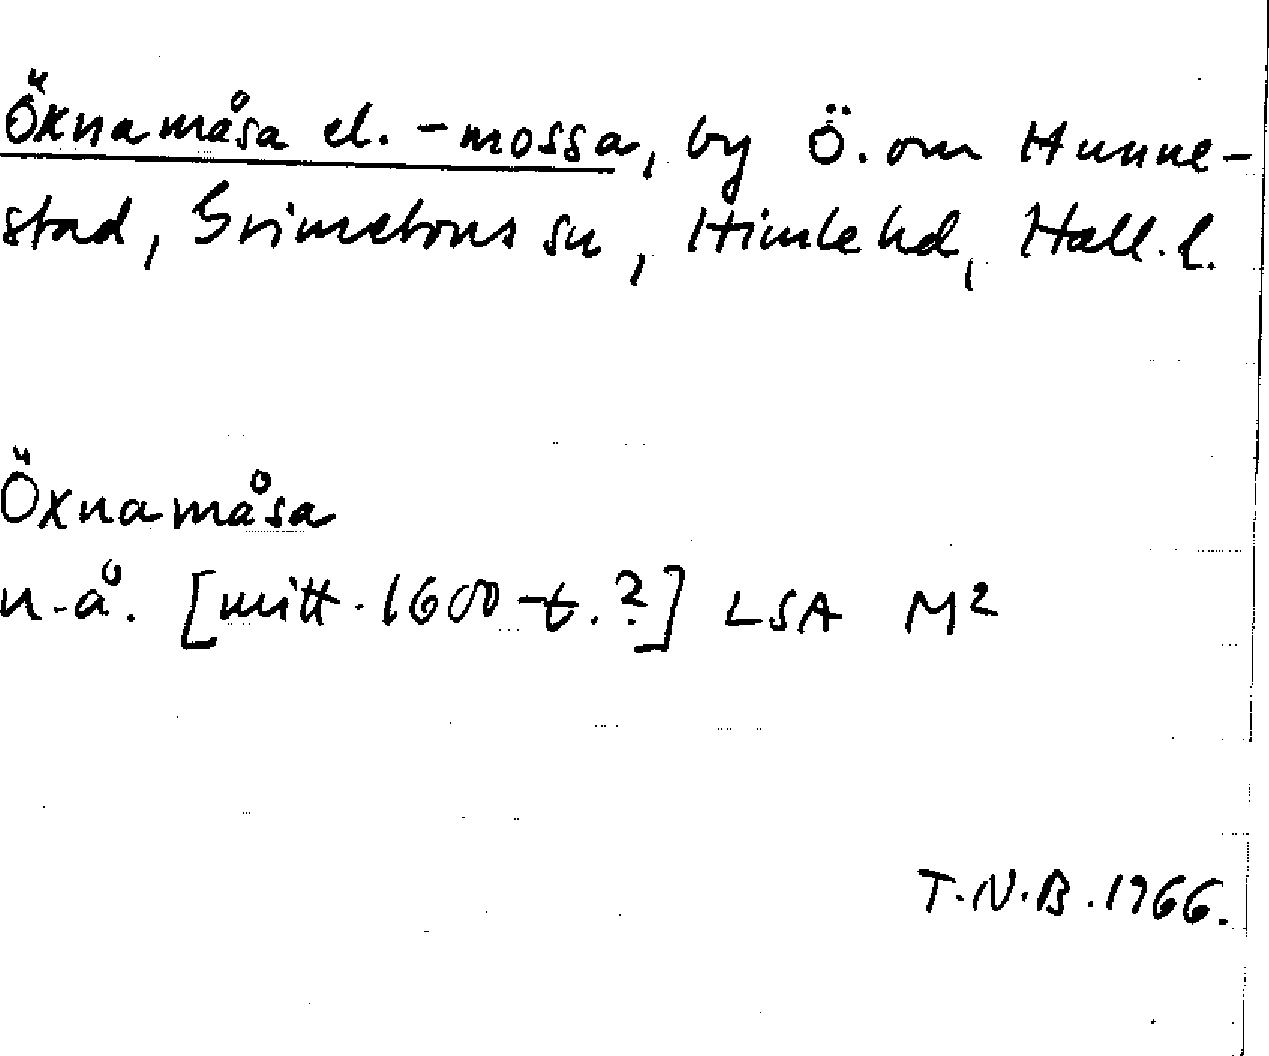 Öxnamåsa el. -mossa, by Ö. om Hunne-
stad, Grimetons sn, Himle hd, Hall. l.
Öxnamåsa
n.å. [mitt. 1600-t.?] LSA M²
T.N.B. 1966.